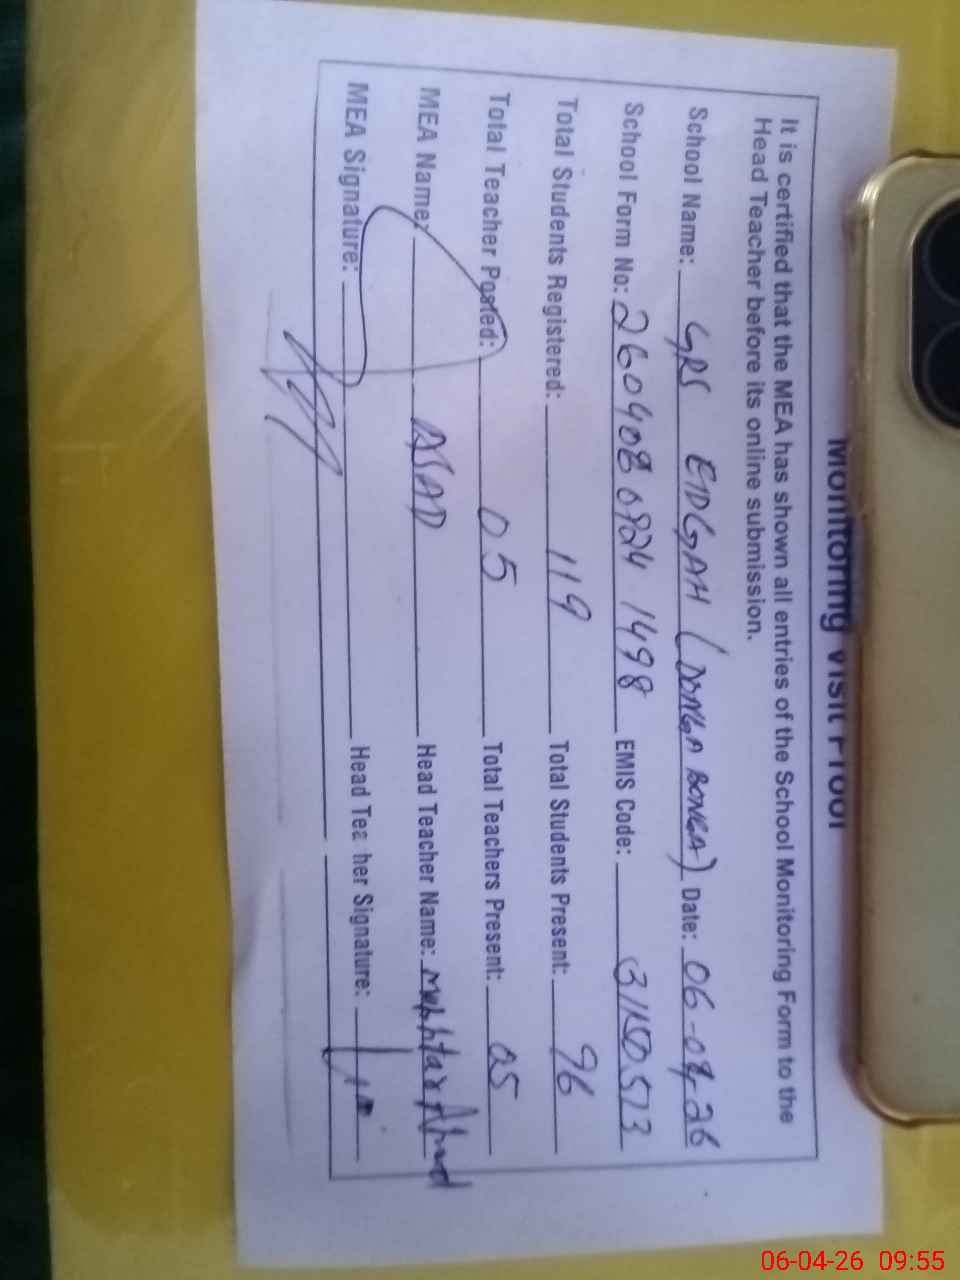 Monitoring Visit Proof
It is certified that the MEA has shown all entries of the School Monitoring Form to the
Head Teacher before its online submission.
School Name: GPS EIDGAH (DONGA BONGA) Date: 06-04-26
School Form No: 2604080924 1498 EMIS Code:
Total Students Registered: 119 Total Students Present: 96
Total Teacher Posted: 05 Total Teachers Present: 05
MEA Name: ASAD Head Teacher Name:
MEA Signature: Head Teacher Signature:
06-04-26 09:55